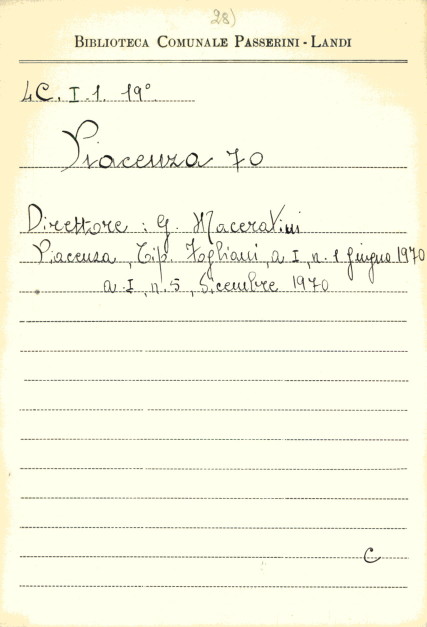 28)
BIBLIOTECA COMUNALE PASSERINI - LANDI
4C. I. 1. 19°
Piacenza 70
Direttore : G. Maceratini
Piacenza, Tip. Fogliani, a I, n. 1 giugno 1970
a. I, n. 5, Dicembre 1970
C